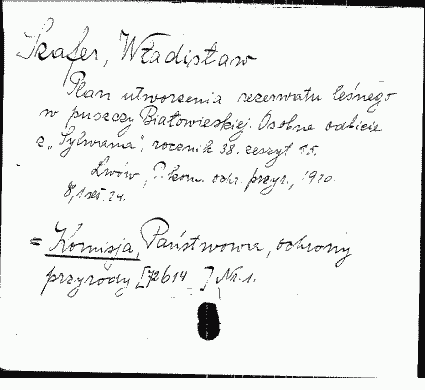 Szafer, Władisław
Plan utworzenia rezerwatu leśnego
w puszczy Białowieskiej. Osobne odbicie
z „Sylwana”, rocznik 38. zeszyt
Lwów, P. kom. ochr. przyr., 1920.
8, 24.
= Komisja, Państwowa, ochrony
przyrody [72614 ] Nr. 1.